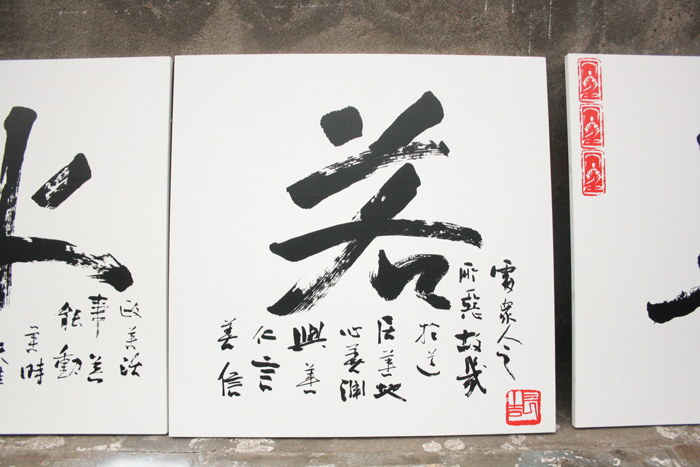 若
處眾人之
所惡故幾
於道
居善地
心善淵
與善
仁言
善信
水
政善治
事善
能動
善時